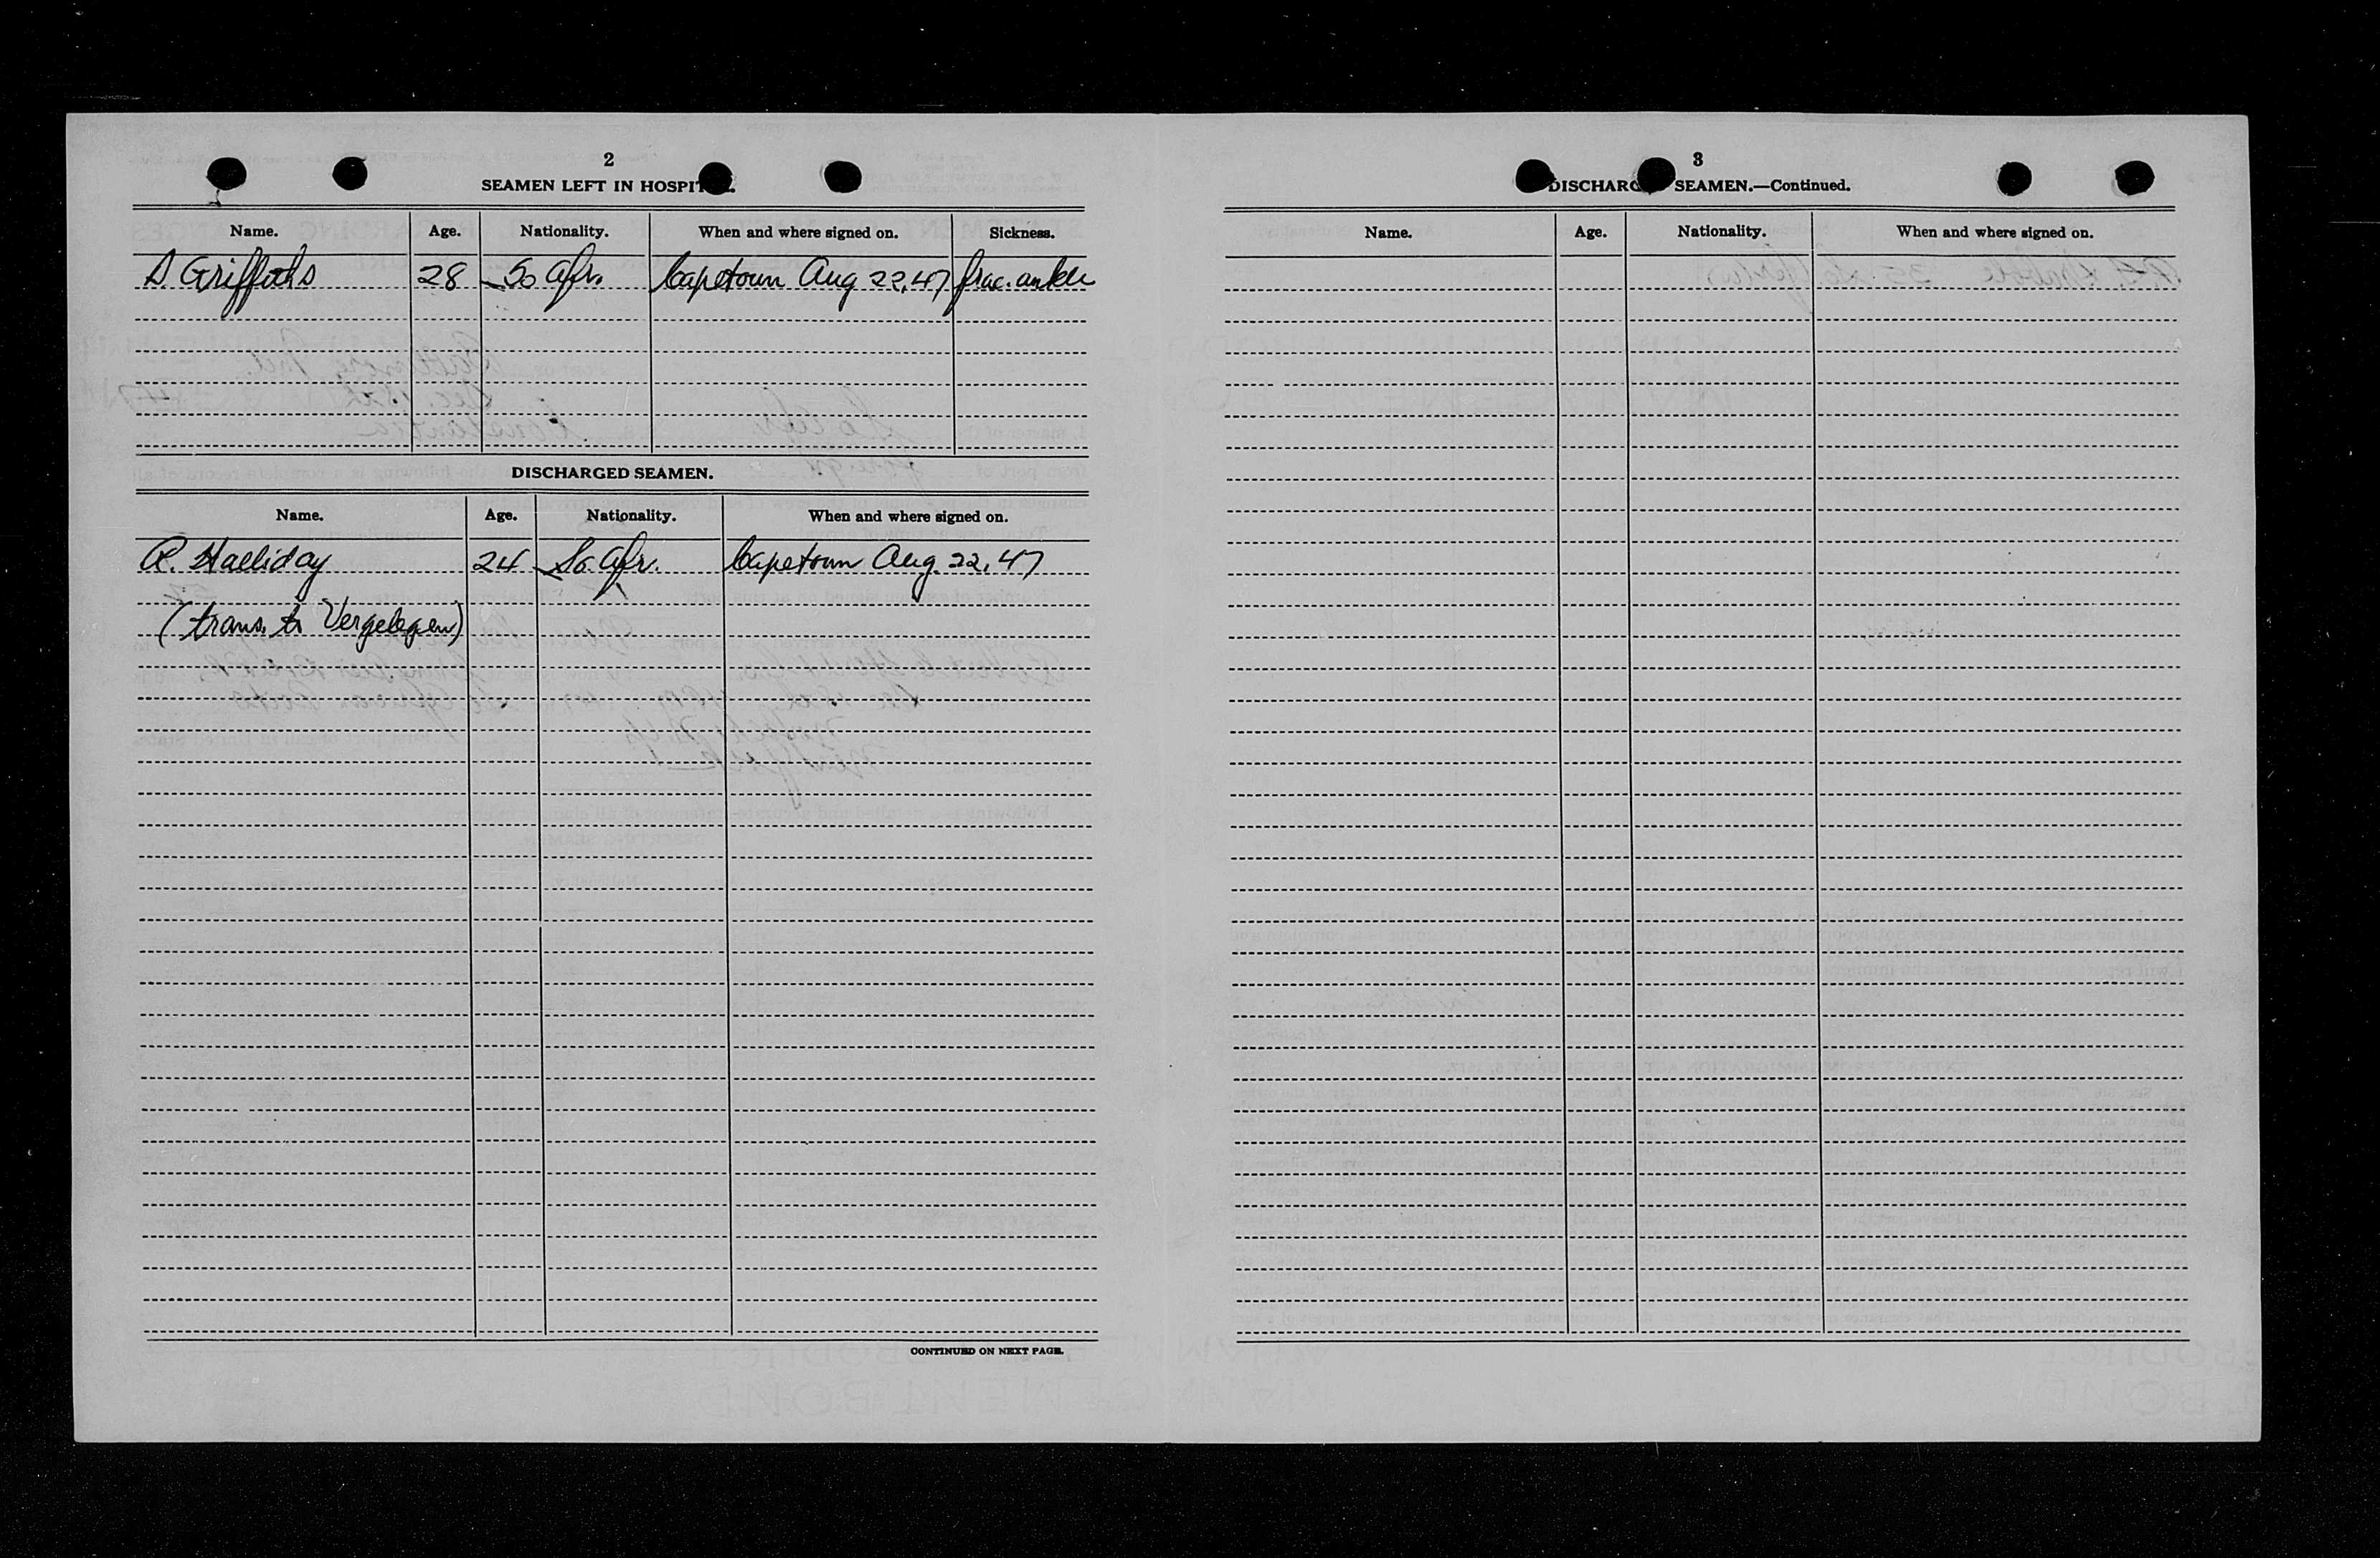 2
SEAMEN LEFT IN HOSPIT
Name. Age. Nationality. When and where signed on. Sickness.
Griffiths 28 So Afr. Capetown Aug 22, 47 frac. ankle
DISCHARGED SEAMEN.
Name. Age. Nationality. When and where signed on.
R. Halliday 24 So. Afr. Capetown Aug. 22, 47
(trans. to Vergelegen)
CONTINUED ON NEXT PAGE.
3
DISCHARG SEAMEN.—Continued.
Name. Age. Nationality. When and where signed on.